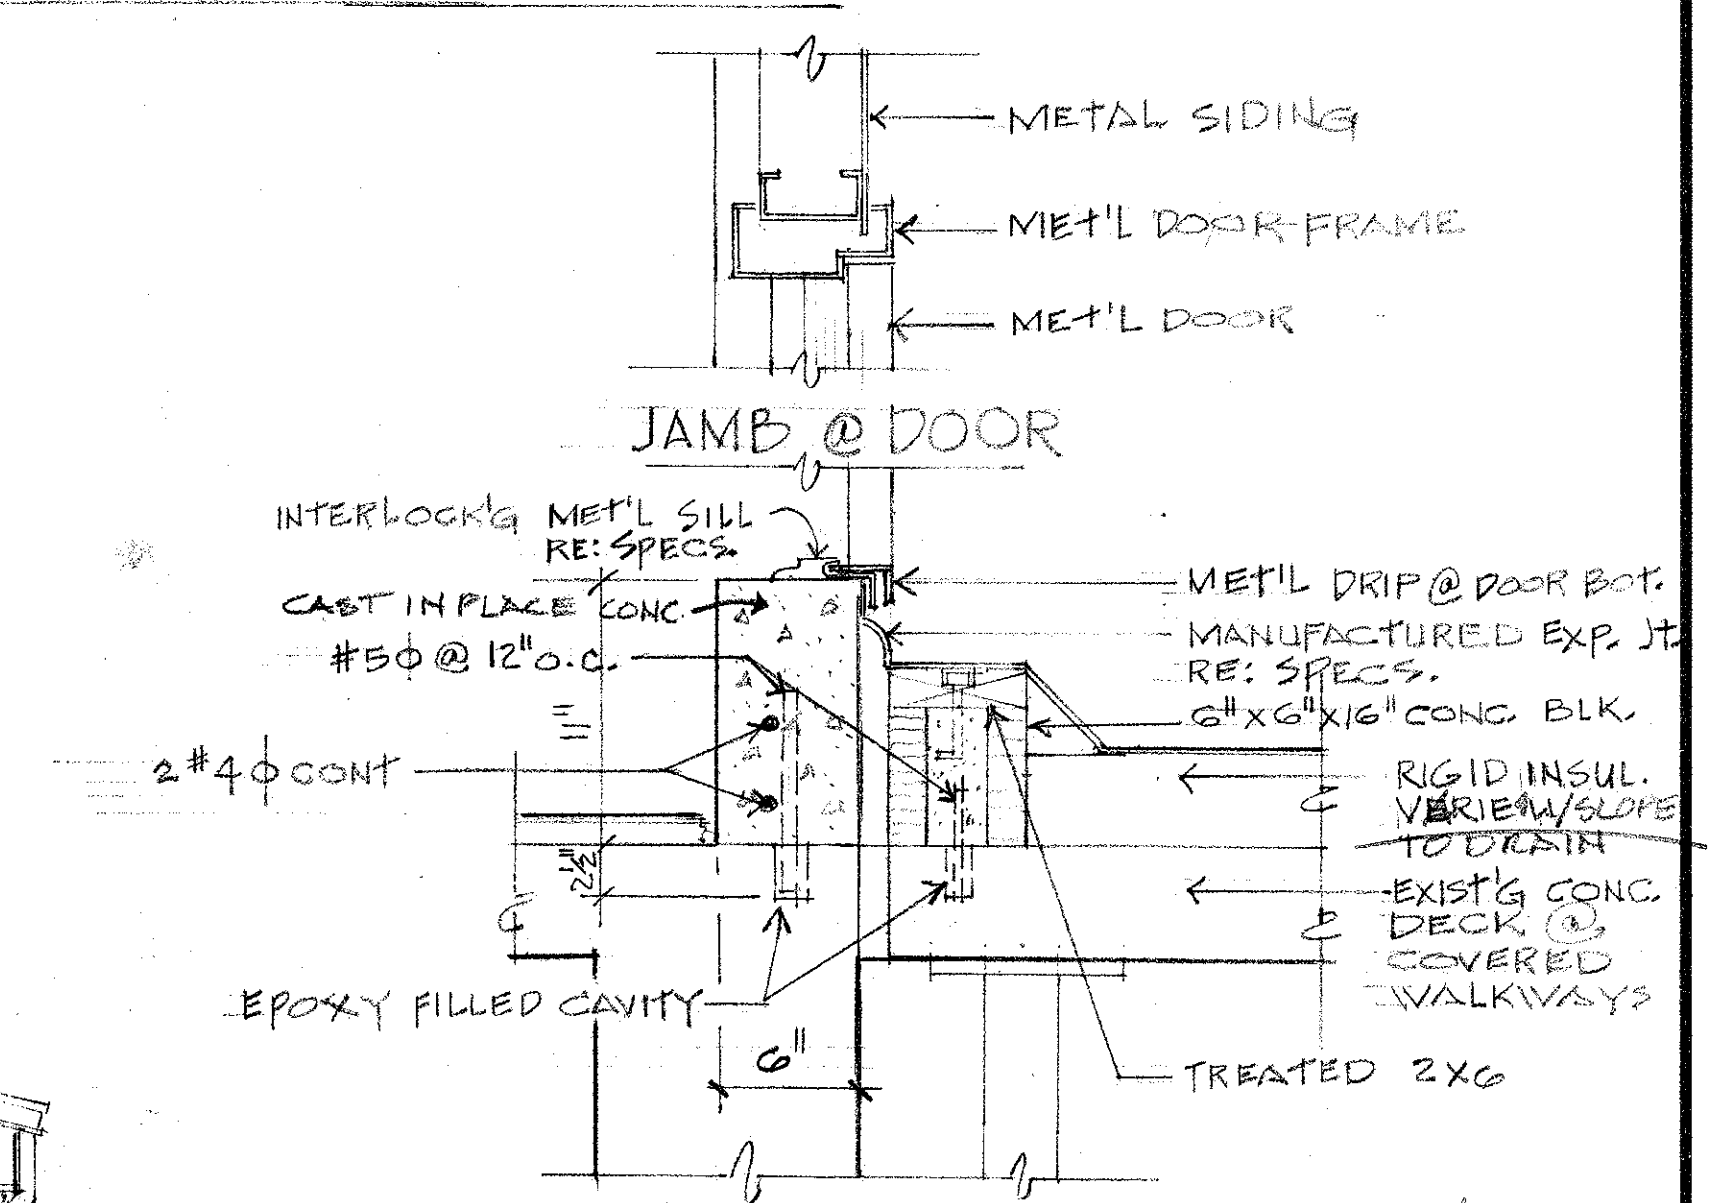 METAL SIDING
MET'L DOOR FRAME
MET'L DOOR
JAMB @ DOOR
INTERLOCK'G MET'L SILL
RE: SPECS.
CAST IN PLACE CONC.
#5⌀ @ 12" O.C.
2 #4⌀ CONT
2½"
EPOXY FILLED CAVITY
6"
MET'L DRIP @ DOOR BOT.
MANUFACTURED EXP. Jt.
RE: SPECS.
6" X 6" X 16" CONC. BLK.
RIGID INSUL.
W/SLOPE
TO DRAIN
EXIST'G CONC.
DECK @
COVERED
WALKWAYS
TREATED 2X6